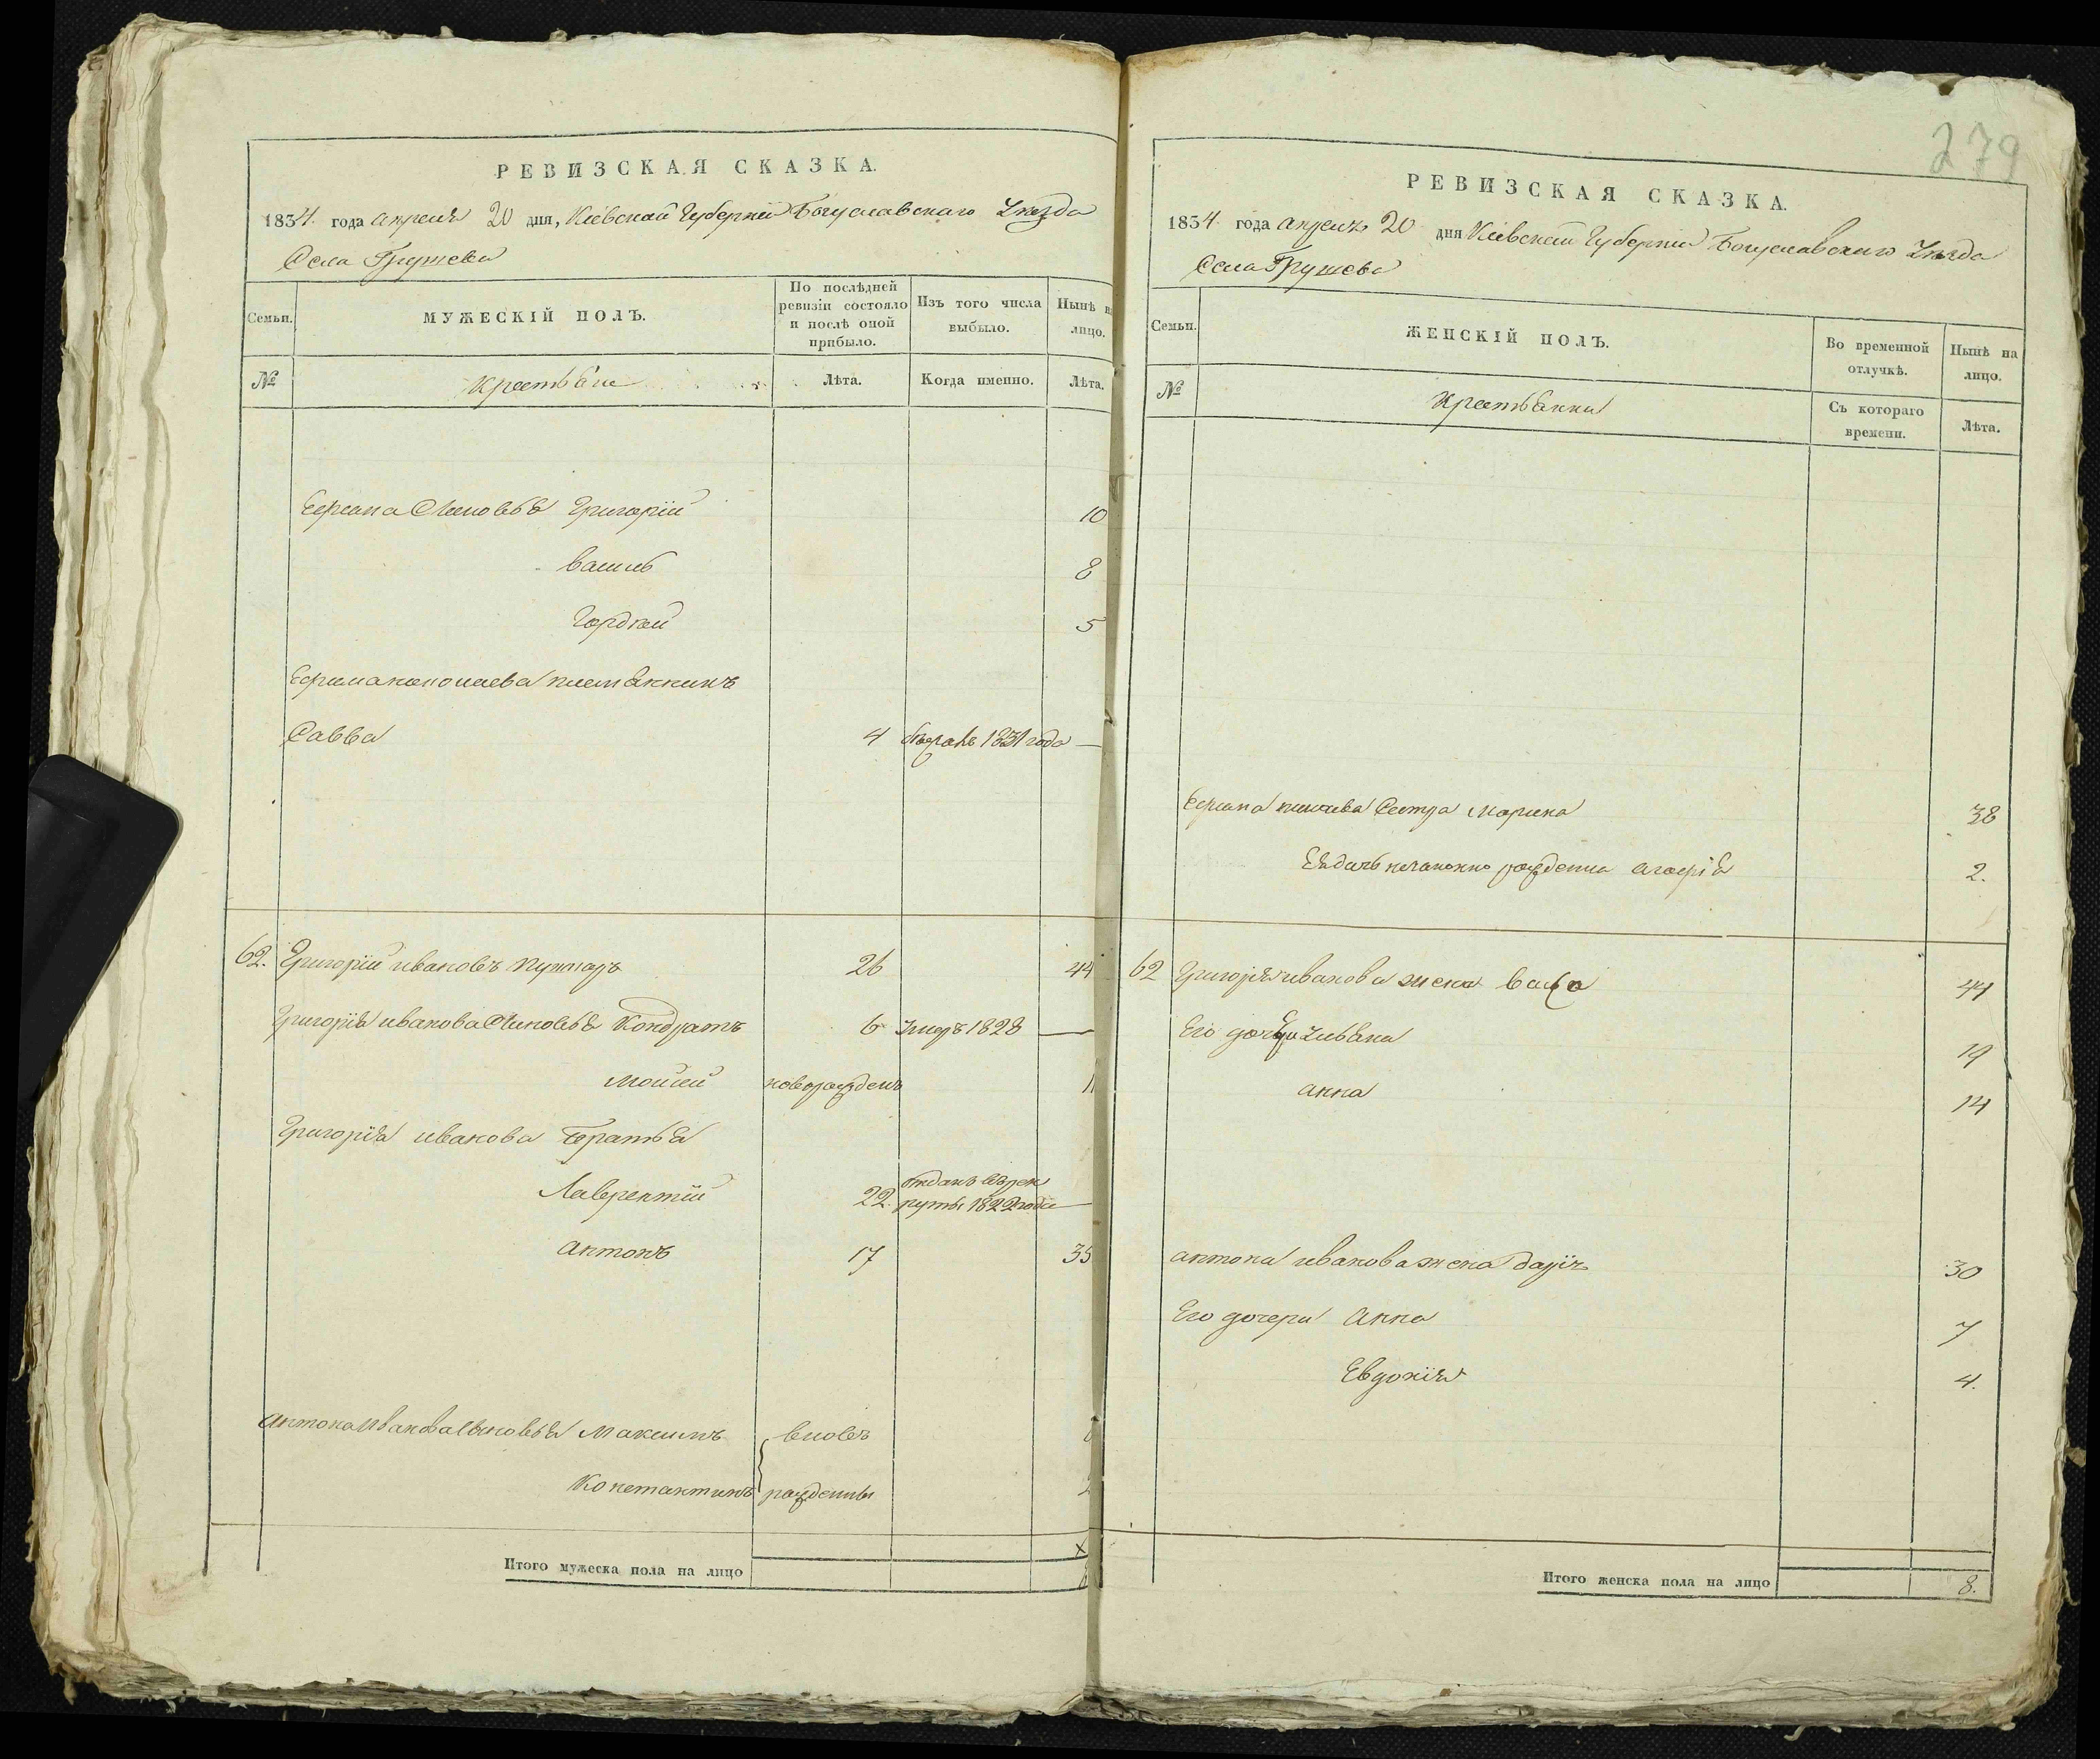 РЕВИЗСКАЯ СКАЗКА.
1834 года апреля 20 дня, Кіевской Губерніи Богуславскаго Уезда
Села Грушева
Семьи.
МУЖЕСКІЙ ПОЛЪ.
По послѣдней ревизіи состояло и послѣ оной прибыло.
Изъ того числа выбыло.
Нынѣ на лицо.
№
Крестьяне
Лѣта.
Когда именно.
Лѣта.
Сыновья Григорій 10
Василь 8
Гордѣй 5
племянникъ
Савва 4 1831 года —
62. Григорій Ивановъ 26 44
Григорія Иванова Сыновья Кондратъ 6 Умеръ 1828 —
Моисей новорожденъ 11
Григорія Иванова Братья
Лаврентій 22. отданъ въ рекруты 1822 года —
Антонъ 17 35
Антона Иванова Сыновья Максимъ вновь
Констактинъ рождены
Итого мужеска пола на лицо
279
РЕВИЗСКАЯ СКАЗКА.
1834 года апреля 20 дня Кіевской Губерніи Богуславского Уезда
Села Грушева
Семьи.
ЖЕНСКІЙ ПОЛЪ.
Во временной отлучкѣ.
Нынѣ на лицо.
№
Крестьянки
Съ котораго времени.
Лѣта.
Сестра Марина 38
Ея дочь незаконно рожденна Агафія 2.
62 Григорія Иванова жена Васса 44
Его дочери Ульяна 19
Анна 14
Антона Иванова жена Дарія 30
Его дочери Анна 7
Евдокія 4.
Итого женска пола на лицо 8.